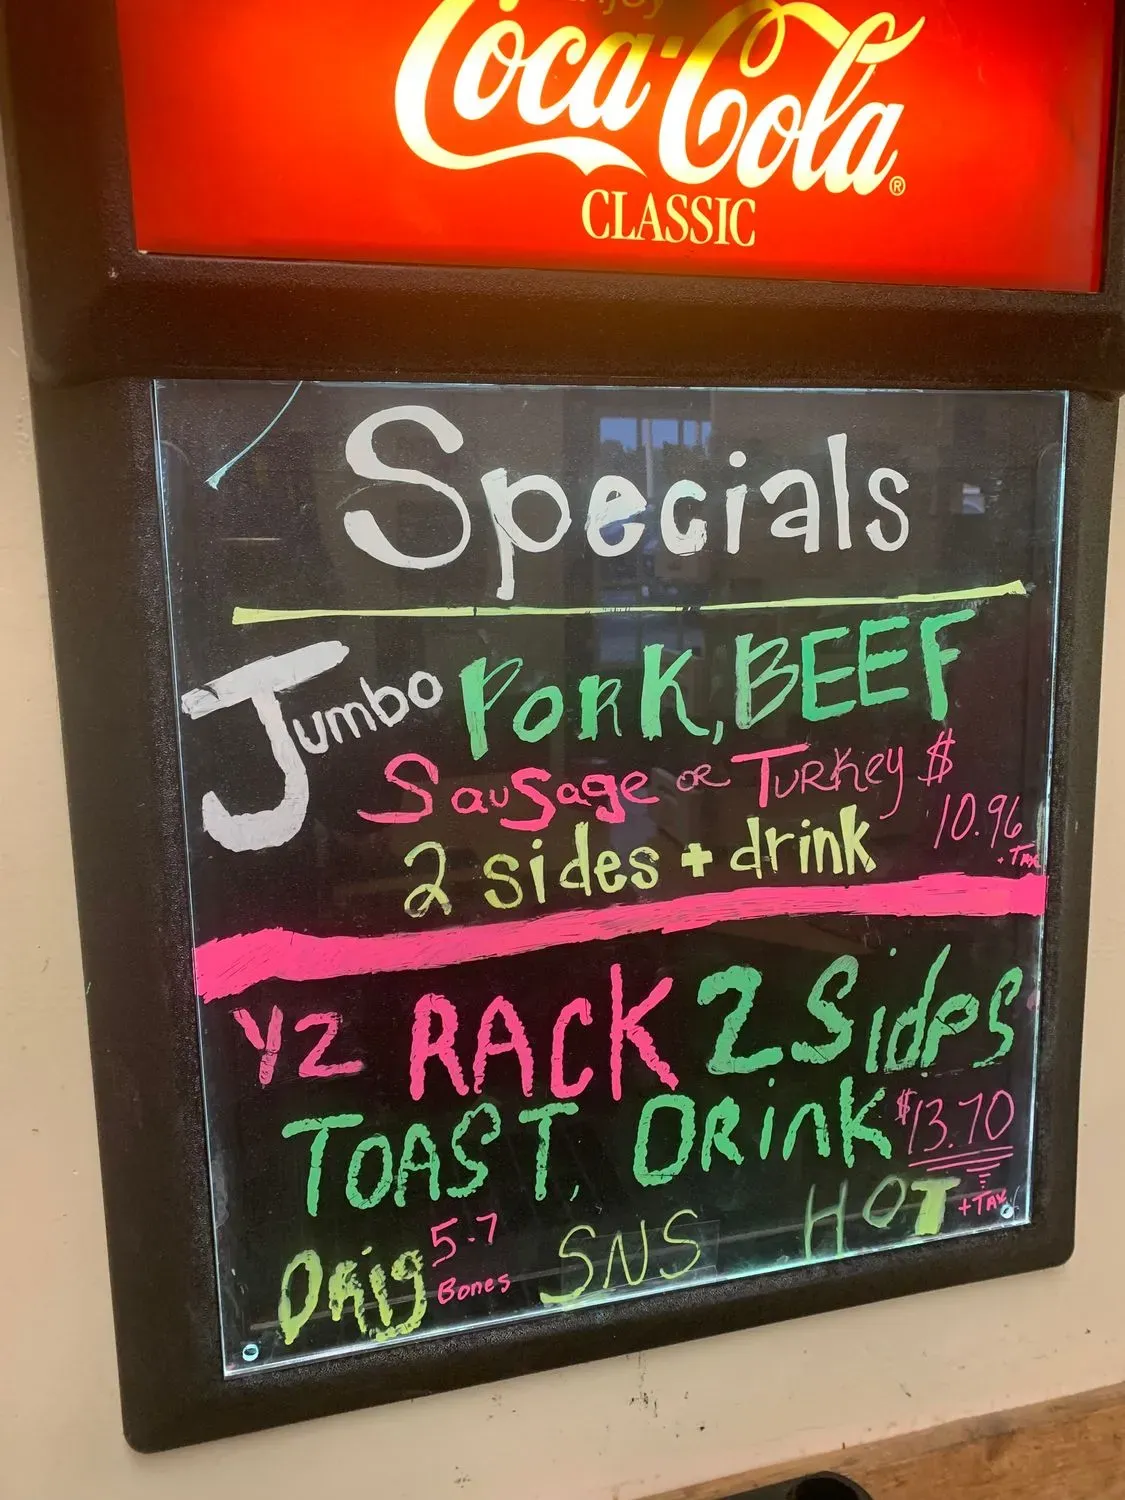 Enjoy
Coca-Cola®
CLASSIC
Specials
Jumbo PORK, BEEF
Sausage OR TURKEY $
10.96
+ TAX
2 sides + drink
1/2 RACK 2 Sides
TOAST, DRinK $13.70
+ TAX
Orig 5-7 Bones SNS HOT